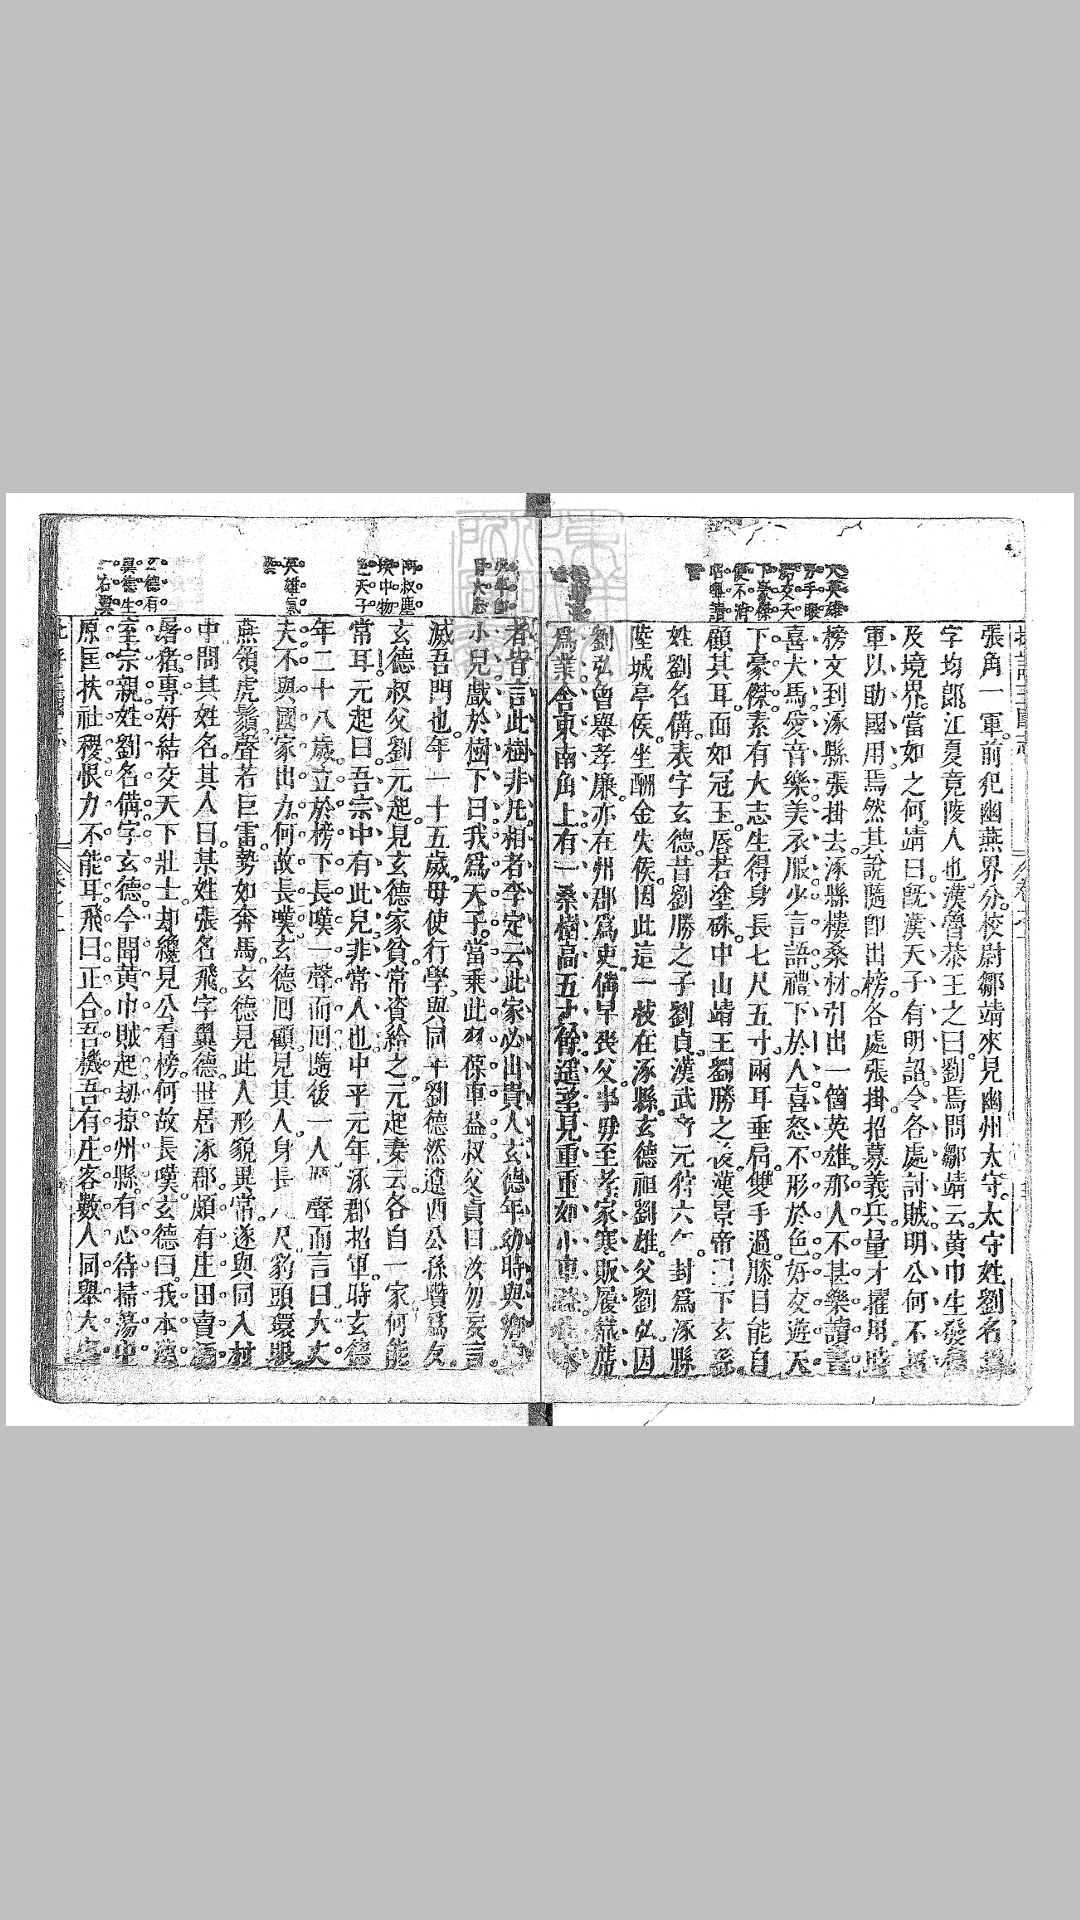 張角一軍前犯幽燕界分校尉鄒靖來見幽州太守太守姓劉名焉
字均郎江夏竟陵人也漢魯恭王之曰劉焉問鄒靖云黃巾生發
及境界當如之何靖曰旣漢天子有明詔令各處討賊明公何不
軍以助國用焉然其說隨卽出榜各處張掛招募義兵量才擢用時
榜文到涿縣張掛去涿縣樓桑村引出一箇英雄那人不甚樂讀書
喜犬馬愛音樂美衣服少言語禮下於人喜怒不形於色好交遊天
下豪傑素有大志生得身長七尺五寸兩耳垂肩雙手過膝目能自
顧其耳面如冠玉唇若塗硃中山靖王劉勝之後漢景帝閣下玄孫
姓劉名備表字玄德昔劉勝之子劉貞漢武帝元狩六年封爲涿縣
陸城亭侯坐酬金失侯因此這一枝在涿縣玄德祖劉雄父劉弘因
劉弘曾舉孝廉亦在州郡爲吏備早喪父事母至孝家寒販履織蓆
爲業舍東南角上有一桑樹高五丈餘遥望見重重如小車蓋
者皆言此樹非凡相者李定云此家必出貴人玄德年幼時與鄉
小兒戲於樹下曰我爲天子當乘此羽葆車蓋叔父責曰汝勿妄言
滅吾門也年一十五歲母使行學與同宗劉德然遼西公孫瓚爲友
玄德叔父劉元起見玄德家貧常資給之元起妻云各自一家何能
常耳元起曰吾宗中有此兒非常人也中平元年涿郡招軍時玄德
年二十八歲立於榜下長嘆一聲而回隨後一人 聲而言曰大丈
夫不與國家出力何故長嘆玄德回顧見其人身長八尺豹頭環眼
燕頷虎鬚聲若巨雷勢如奔馬玄德見此人形貌異常遂與同入村
中問其姓名其人曰某姓張名飛字翼德世居涿郡頗有庄田賣酒
屠猪專好結交天下壯士却纔見公看榜何故長嘆玄德曰我本漢
室宗親姓劉名備字玄德今聞黃巾賊起刼掠州縣有心待掃蕩中
原匡扶社稷恨力不能耳飛曰正合吾機吾有庄客數人同舉大